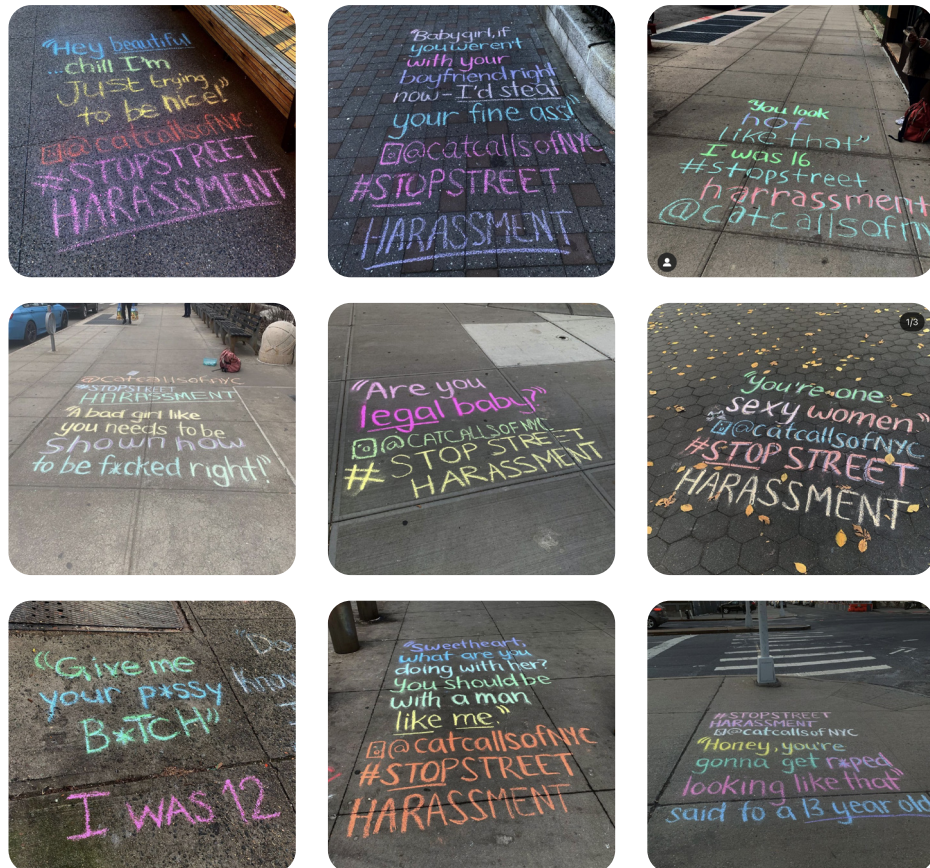 "Hey beautiful
...chill I'm
Just trying
to be nice!"
@catcallsofNYC
#STOPSTREET
HARASSMENT
"Babygirl, if
you weren't
with your
boyfriend right
now-I'd steal
your fine ass!"
@catcallsofNYC
#STOPSTREET
HARASSMENT
"You look
hot
like that"
I was 16
#stopstreet
harrassment
@catcallsofn
@catcallsofnyc
#STOPSTREET
HARASSMENT
"A bad girl like
you needs to be
shown how
to be f*cked right!"
"Are you
legal baby?"
@CATCALLSOFNYC
# STOP STREET
HARASSMENT
1/3
"You're one
sexy women"
@catcallsofNYC
#STOP STREET
HARASSMENT
"Give me
your p*ssy
B*TCH"
I WAS 12
Do
Know
"Sweetheart,
what are you
doing with her?
You should be
with a man
like me."
@catcallsofNYC
#STOPSTREET
HARASSMENT
#STOPSTREET
HARASSMENT
@catcallsofNYC
"Honey, you're
gonna get r*ped
looking like that"
said to a 13 year old